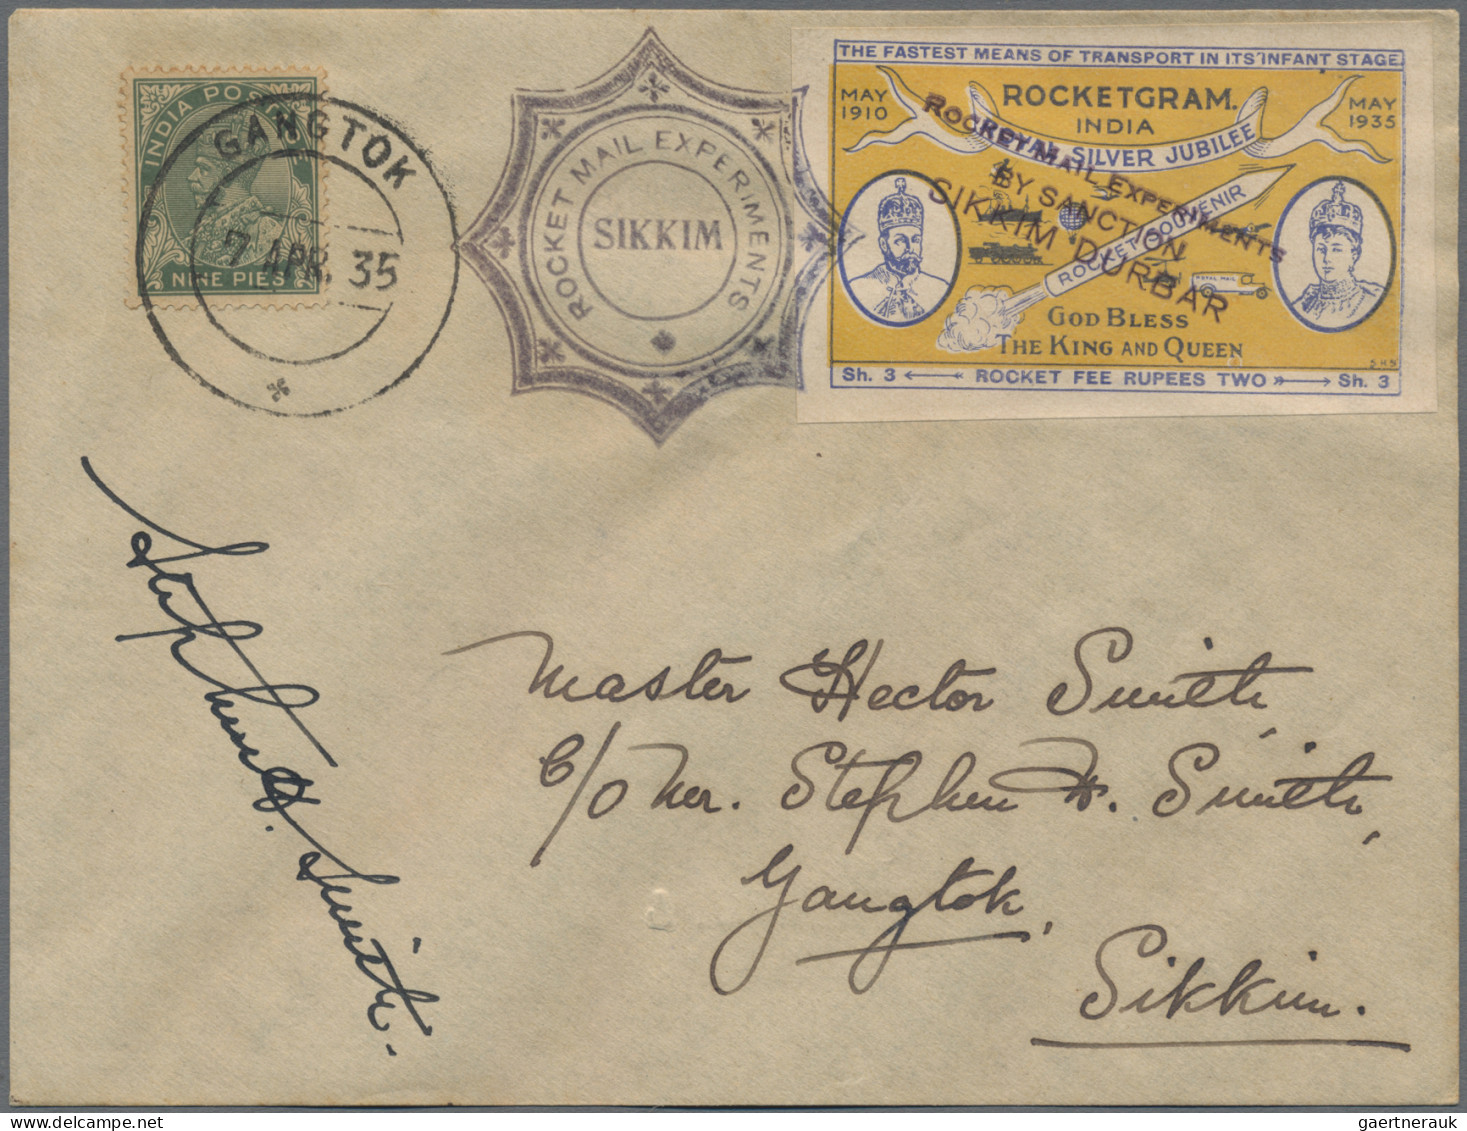 INDIA POSTAGE
NINE PIES
GANGTOK
7 APR. 35
ROCKET MAIL EXPERIMENTS
SIKKIM
THE FASTEST MEANS OF TRANSPORT IN ITS' INFANT STAGE.
MAY 1910
ROCKETGRAM.
INDIA
MAY 1935
ROYAL SILVER JUBILEE
ROCKET MAIL EXPERIMENTS
BY SANCTION
SIKKIM DURBAR
ROCKET SOUVENIR
ROYAL MAIL
GOD BLESS
THE KING AND QUEEN
S.H.S
Sh. 3 ROCKET FEE RUPEES TWO Sh. 3
Stephen H. Smith.
Master Hector Smith,
C/o Mr. Stephen H. Smith,
Gangtok,
Sikkim.
gaertnerauk